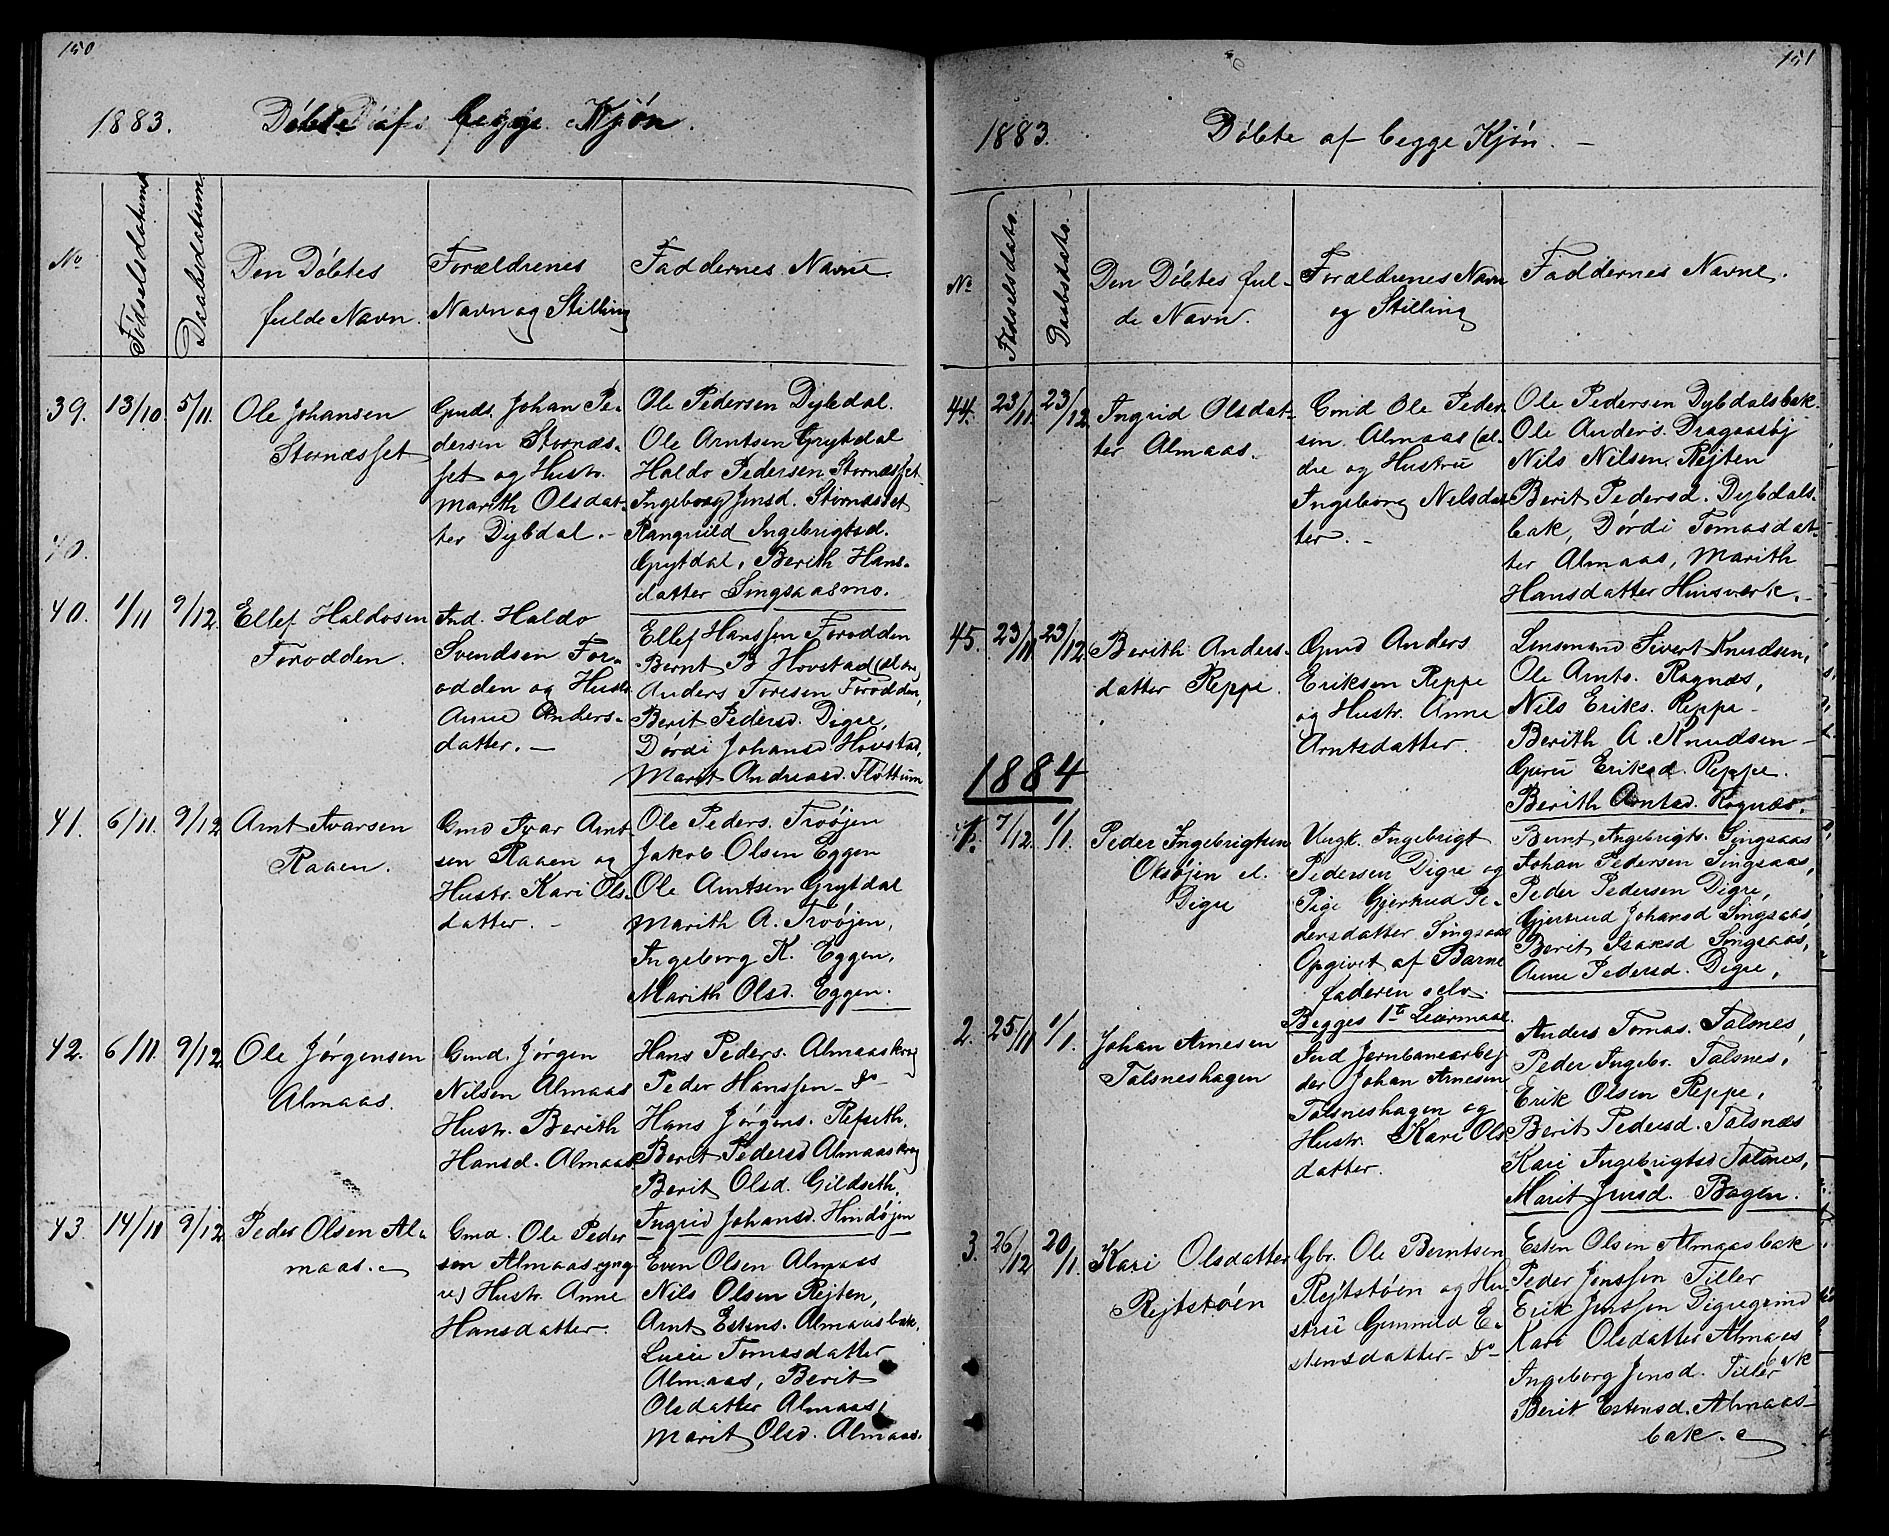 150
1883. Döbte af begge Kjön.
No
Födselsdatum
Daabsdatum.
Den Döbtes
fulde Navn.
Forældrenes
Navn og Stilling
Faddernes Navne.
39. 13/10 5/11.
Ole Johansen
Stornæsset
Gmds. Johan Pe-
dersen Stornæs-
set og Hustr.
Marith Olsdat-
ter Dybdal. -
Ole Pedersen Dybdal.
Ole Arntsen Grytdal
Haldo Pedersen Stornæsset
Ingeborg Jensd. Stornæsset
Rangnild Ingebrigtsd.
Grytdal, Berith Hans-
datter Singsaasmo.
40.
40. 1/11 9/12.
Ellef Haldosen
Forodden.
Ind. Haldo
Svendsen For-
odden og Hustr
Anne Anders-
datter. -
Ellef Hanssen Forodden
Bernt B Hovstad
Anders Toresen Forodden,
Berit Pedersd. Digre,
Dördi Johansd Hovstad,
Marit Andreasd. Flöttum
41. 6/11. 9/12
Arnt Ivarsen
Raaen.
Gmd Ivar Arnt
sen Raaen og
Hustr. Kari Ols-
datter. -
Ole Peders. Troöjen
Jakob Olsen Eggen
Ole Arntsen Grytdal
Marith A. Troöjen,
Ingeborg K. Eggen,
Marith Olsd. Eggen.
42. 6/11. 9/12.
Ole Jörgensen
Almaas.
Gmd. Jörgen
Nilsen Almaas
Hustr. Berith
Hansd. Almaas
Hans Peders. Almaaskrog
Peder Hanssen - do -
Hans Jörgens. Refseth.
Berit Pedersd Almaaskrog
Berit Olsd. Gildseth.
Ingrid Johansd. Hindöjen
43. 14/11 9/12
Peder Olsen Al-
maas.
Gmd. Ole Peder
sen Almaas (yng
re) Hustr. Anne
Hansdatter.
Even Olsen Almaas
Nils Olsen Rejten,
Arnt Estens. Almaasbak.
Lucie Tomasdatter
Almaas, Berit
Olsdatter Almaas,
Marit Olsd. Almaas.
151
1883. Döbte af begge Kjön. -
No
Fødselsdato.
Daabsdato.
Den Döbtes ful-
de Navn.
Forældrenes Navn
og Stilling
Faddernes Navne.
44. 23/11. 23/12.
Ingrid Olsdat-
ter Almaas.
Gmd Ole Peder
sen Almaas (æl-
dre og Hustru
Ingeborg Nilsdat
ter. -
Ole Pedersen Dybdalsbak.
Ole Anders. Dragaasöj
Nils Nilsen Rejten
Berit Pedersd. Dybdals-
bak, Dördi Tomasdat-
ter Almaas, Marith
Hansdatter Hinsverk.
45. 23/11 23/12
Berith Anders-
datter Reppe.
Gmd Anders
Eriksen Reppe
og Hustr. Anne
Arntsdatter.
Lensmand Sivert Knudsen,
Ole Arnts. Rognæs,
Nils Eriks. Reppe -
Berith A. Knudsen -
Guru Eriksd. Reppe.
Berith Arntsd. Rognæs.
1884
1. 7/12. 1/1.
Peder Ingebrigtsen
Oksöjen el.
Digre
Ungk. Ingebrigt
Pedersen Digre og
Pige Gjertrud Pe-
dersdatter Singsaas
Opgivet af Barne
faderen selv.
Begges 1te Leiermaal.
Bernt Ingebrigts. Singsaas
Johan Pedersen Singsaas,
Peder Pedersen Digre,
Gjertrud Johansd Singsaas,
Berit Isaksd Singsaas,
Anne Pedersd. Digre,
2. 25/11 1/1.
Johan Arnesen
Talsneshagen
Ind Jernbanearbej
der Johan Arnesen
Talsneshagen og
Hustr. Kari Ols
datter.
Anders Tomas. Talsnes,
Peder Ingebr. Talsnes,
Erik Olsen Reppe,
Berit Pedersd. Talsnæs
Kari Ingebrigtsd Talsnes,
Marit Jensd. Bogen.
3. 26/12 20/1.
Kari Olsdatter
Rejtstöen
Gbr. Ole Berntsen
Rejtstöen og Hu-
stru Gunnild E-
stensdatter - do -
Esten Olsen Almaasbak
Peder Jenssen Tiller
Erik Jenssen Digregrind
Kari Olsdatter Almaas
bak
Ingeborg Jensd. Tiller
Berit Estensd. Almaas-
bak.